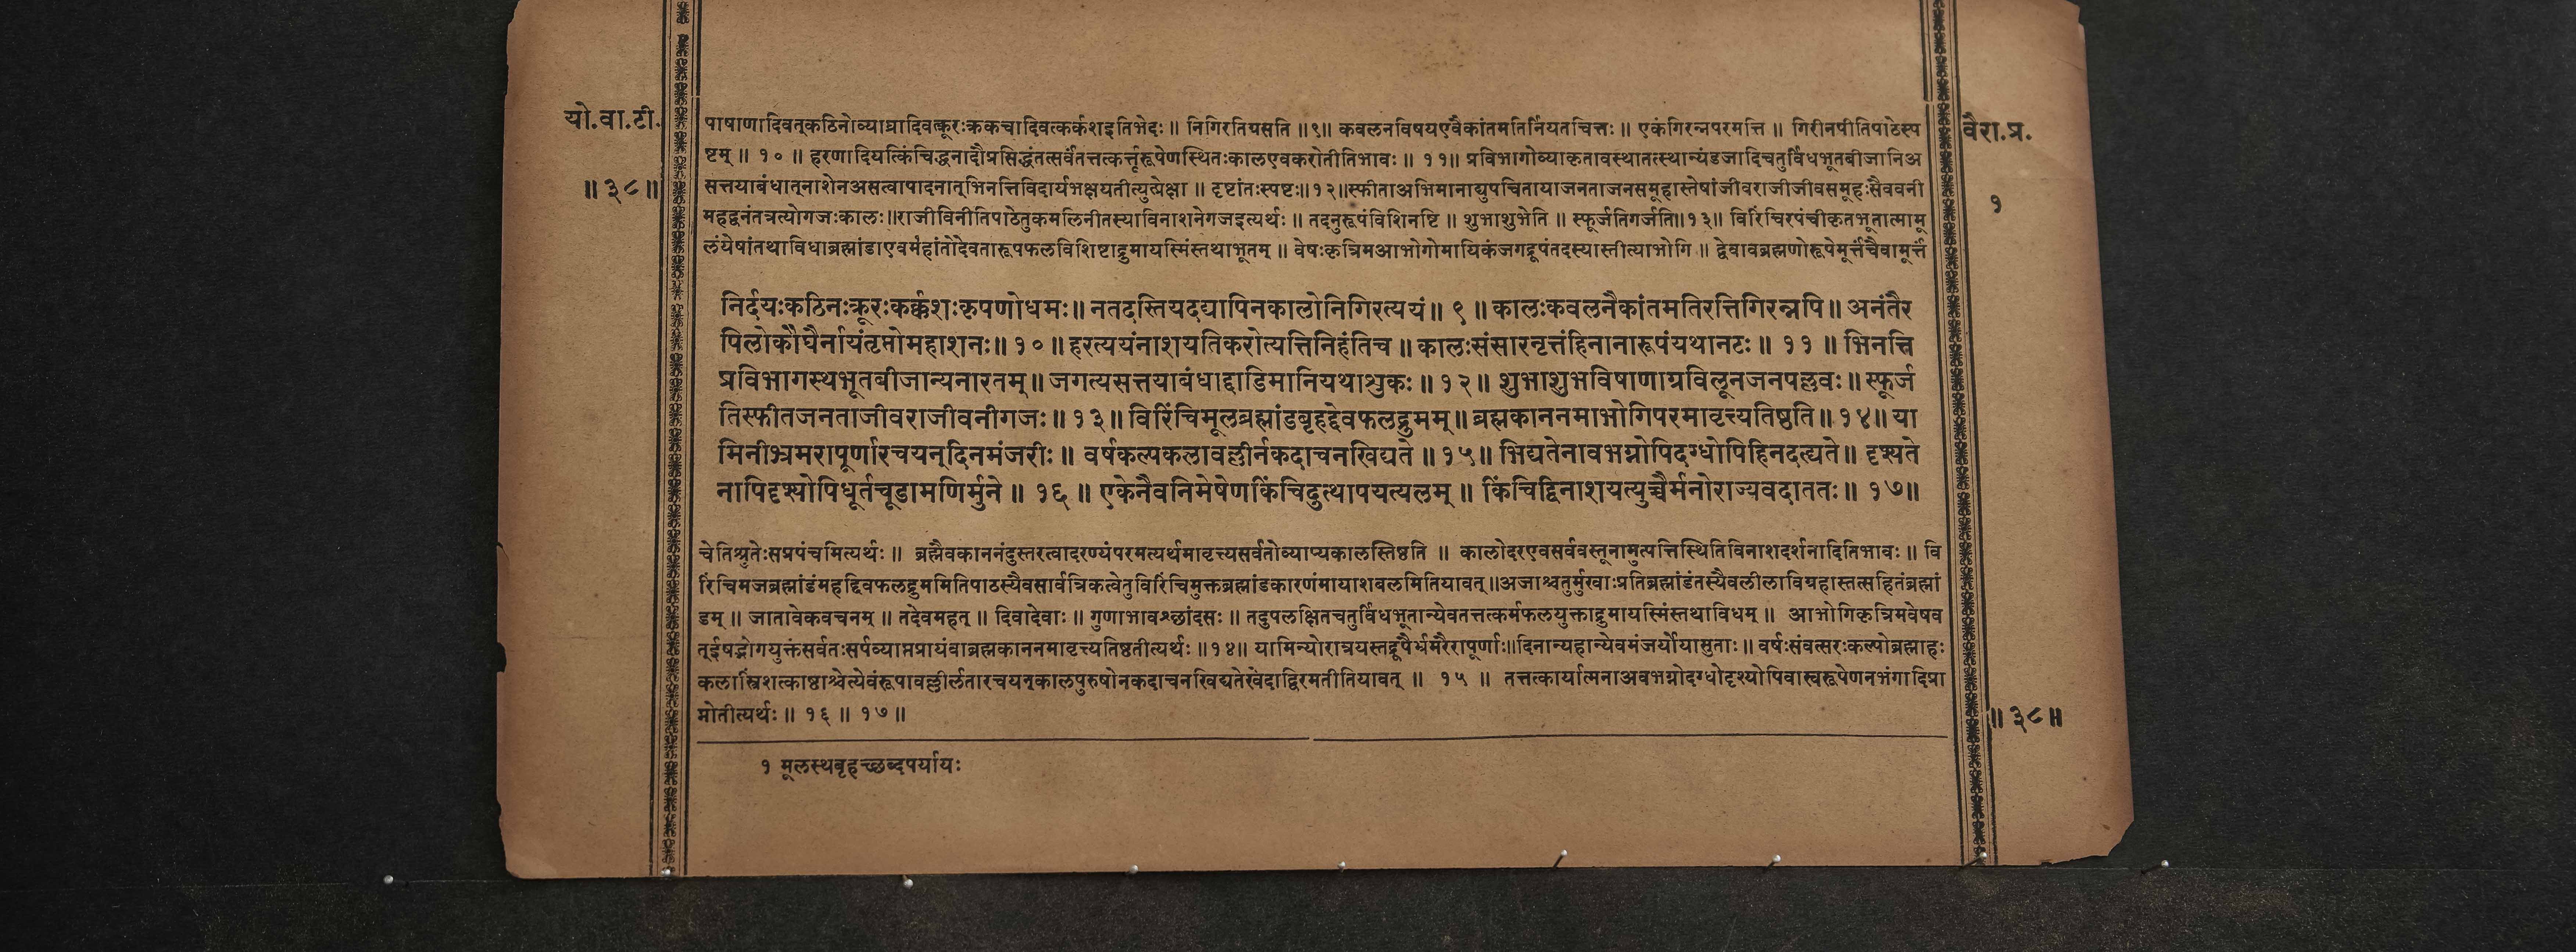 यो.वा.टी.
॥३८॥
पाषाणादिवत्कठिनोव्याघ्रादिवत्क्रूरःक्रकचादिवत्कर्कशइतिभेदः॥ निगिरतिग्रसति॥९॥ कवलनविषयएवैकांतमतिर्नियतचित्तः॥ एकंगिरन्नपरमत्ति॥ गिरीनपीतिपाठेस्प
ष्टम्॥ १०॥ हरणादियत्किंचिद्धनादौप्रसिद्धंतत्सर्वंतत्तत्कर्त्तृरूपेणस्थितःकालएवकरोतीतिभावः॥ ११॥ प्रविभागोव्याकृतावस्थातत्स्थान्यंडजादिचतुर्विधभूतबीजानिअ
सत्तयाबंधात्नाशेनअसत्वापादनात्भिनत्तिविदार्यभक्षयतीत्युत्प्रेक्षा॥ दृष्टांतःस्पष्टः॥१२॥स्फीताअभिमानाद्युपचितायाजनताजनसमूहास्तेषांजीवराजीजीवसमूहःसैववनी
महद्वनंतत्रत्योगजःकालः॥राजीविनीतिपाठेतुकमलिनीतस्याविनाशनेगजइत्यर्थः॥ तदनुरूपंविशिनष्टि॥ शुभाशुभेति॥ स्फूर्जतिगर्जति॥१३॥ विरिंचिरपंचीकृतभूतात्मामू
लंयेषांतथाविधाब्रह्मांडाएवमंहांतोदेवतारूपफलविशिष्टाद्रुमायस्मिंस्तथाभूतम्॥ वेषःकृत्रिमआभोगोमायिकंजगद्रूपंतदस्यास्तीत्याभोगि॥ द्वेवावब्रह्मणोरूपेमूर्त्तंचैवामूर्त्तं
निर्दयःकठिनःक्रूरःकर्क्कशःकृपणोधमः॥ नतदस्तियदद्यापिनकालोनिगिरत्ययं॥ ९॥ कालःकवलनैकांतमतिरत्तिगिरन्नपि॥ अनंतैर
पिलोकौघैर्नायंतृप्तोमहाशनः॥१०॥हरत्ययंनाशयतिकरोत्यत्तिनिहंतिच॥कालःसंसारनृत्तंहिनानारूपंयथानटः॥ ११॥ भिनत्ति
प्रविभागस्थभूतबीजान्यनारतम्॥जगत्यसत्तयाबंधाद्दाडिमानियथाशुकः॥१२॥ शुभाशुभविषाणाग्रविलूनजनपल्लवः॥स्फूर्ज
तिस्फीतजनताजीवराजीवनीगजः॥१३॥ विरिंचिमूलब्रह्मांडबृहद्देवफलद्रुमम्॥ब्रह्मकाननमाभोगिपरमावृत्त्यतिष्ठति॥१४॥या
मिनीभ्रमरापूर्णारचयन्दिनमंजरीः॥ वर्षकल्पकलावल्लीर्नकदाचनखिद्यते॥१५॥भिद्यतेनावभग्नोपिदग्धोपिहिनदह्यते॥ दृश्यते
नापिदृश्योपिधूर्तचूडामणिर्मुने॥ १६॥ एकेनैवनिमेषेणकिंचिदुत्थापयत्यलम्॥ किंचिद्विनाशयत्युच्चैर्मनोराज्यवदाततः॥ १७॥
चेतिश्रुतेःसप्रपंचमित्यर्थः॥ ब्रह्मैवकाननंदुस्तरत्वादरण्यंपरमत्यर्थमावृत्त्यसर्वतोव्याप्यकालस्तिष्ठति॥ कालोदरएवसर्ववस्तूनामुत्पत्तिस्थितिविनाशदर्शनादितिभावः॥ वि
रिंचिमजब्रह्मांडंमहद्दिवफलद्रुममितिपाठस्यैवसार्वत्रिकत्वेतुविरिंचिमुक्तब्रह्मांडकारणंमायाशबलमितियावत्॥अजाश्चतुर्मुखाःप्रतिब्रह्मांडंतस्यैवलीलाविग्रहास्तत्सहितंब्रह्मां
डम्॥ जातावेकवचनम्॥ तदेवमहत्॥ दिवादेवाः॥ गुणाभावश्छांदसः॥ तदुपलक्षितचतुर्विधभूतान्येवतत्तत्कर्मफलयुक्ताद्रुमायस्मिंस्तथाविधम्॥ आभोगिकृत्रिमवेषव
त्ईषद्भोगयुक्तंसर्वतःसर्पव्याप्तप्रायंवाब्रह्मकाननमावृत्त्यतिष्ठतीत्यर्थः॥१४॥ यामिन्योरात्रयस्तद्रूपैर्भ्रमरैरापूर्णाः॥दिनान्यहान्येवमंजर्योयासुताः॥वर्षःसंवत्सरःकल्पोब्रह्माहः
कलास्त्रिंशत्काष्ठाश्चेत्येवंरूपावल्लीर्लतारचयन्कालपुरुषोनकदाचनखिद्यतेखेदाद्विरमतीतियावत्॥ १५॥ तत्तत्कार्यात्मनाअवभग्नोदग्धोदृश्योपिवास्वरूपेणनभंगादिप्रा
प्नोतीत्यर्थः॥ १६॥ १७॥
१ मूलस्थबृहच्छब्दपर्यायः
वैरा.प्र.
१
॥३८॥